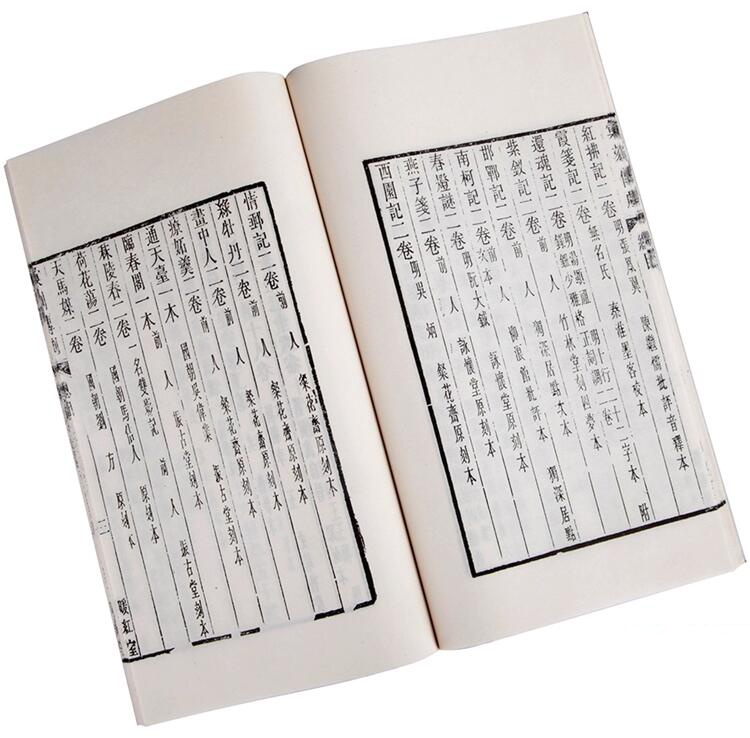 紅拂記二卷 明張鳳翼 陳繼儒批評音釋本
霞箋記二卷 無名氏 秦淮墨客校本
還魂記二卷 明湯顯祖 明 行二十二字本 附
紫釵記二卷 前人 竹林堂刻四夢本
邯鄲記二卷 前人 獨深居點次本
南柯記二卷 前人 柳浪館批評本 獨深居點
次本
春燈謎二卷 明阮大鋮 詠懷堂原刻本
燕子箋二卷 前人 詠懷堂原刻本
西園記二卷 明吳炳 粲花齋原刻本
情郵記二卷 前人 粲花齋原刻本
綠牡丹二卷 前人 粲花齋原刻本
畫中人二卷 前人 粲花齋原刻本
療妬羹二卷 前人 粲花齋原刻本
通天臺一本 國朝吳偉業 振古堂刻本
臨春閣一本 前人 振古堂刻本
秣陵春二卷 一名雙影記 前人 振古堂刻本
荷花蕩二卷 國朝馬佶人 原刻本
天馬媒二卷 國朝劉方 原刻本
暖紅室